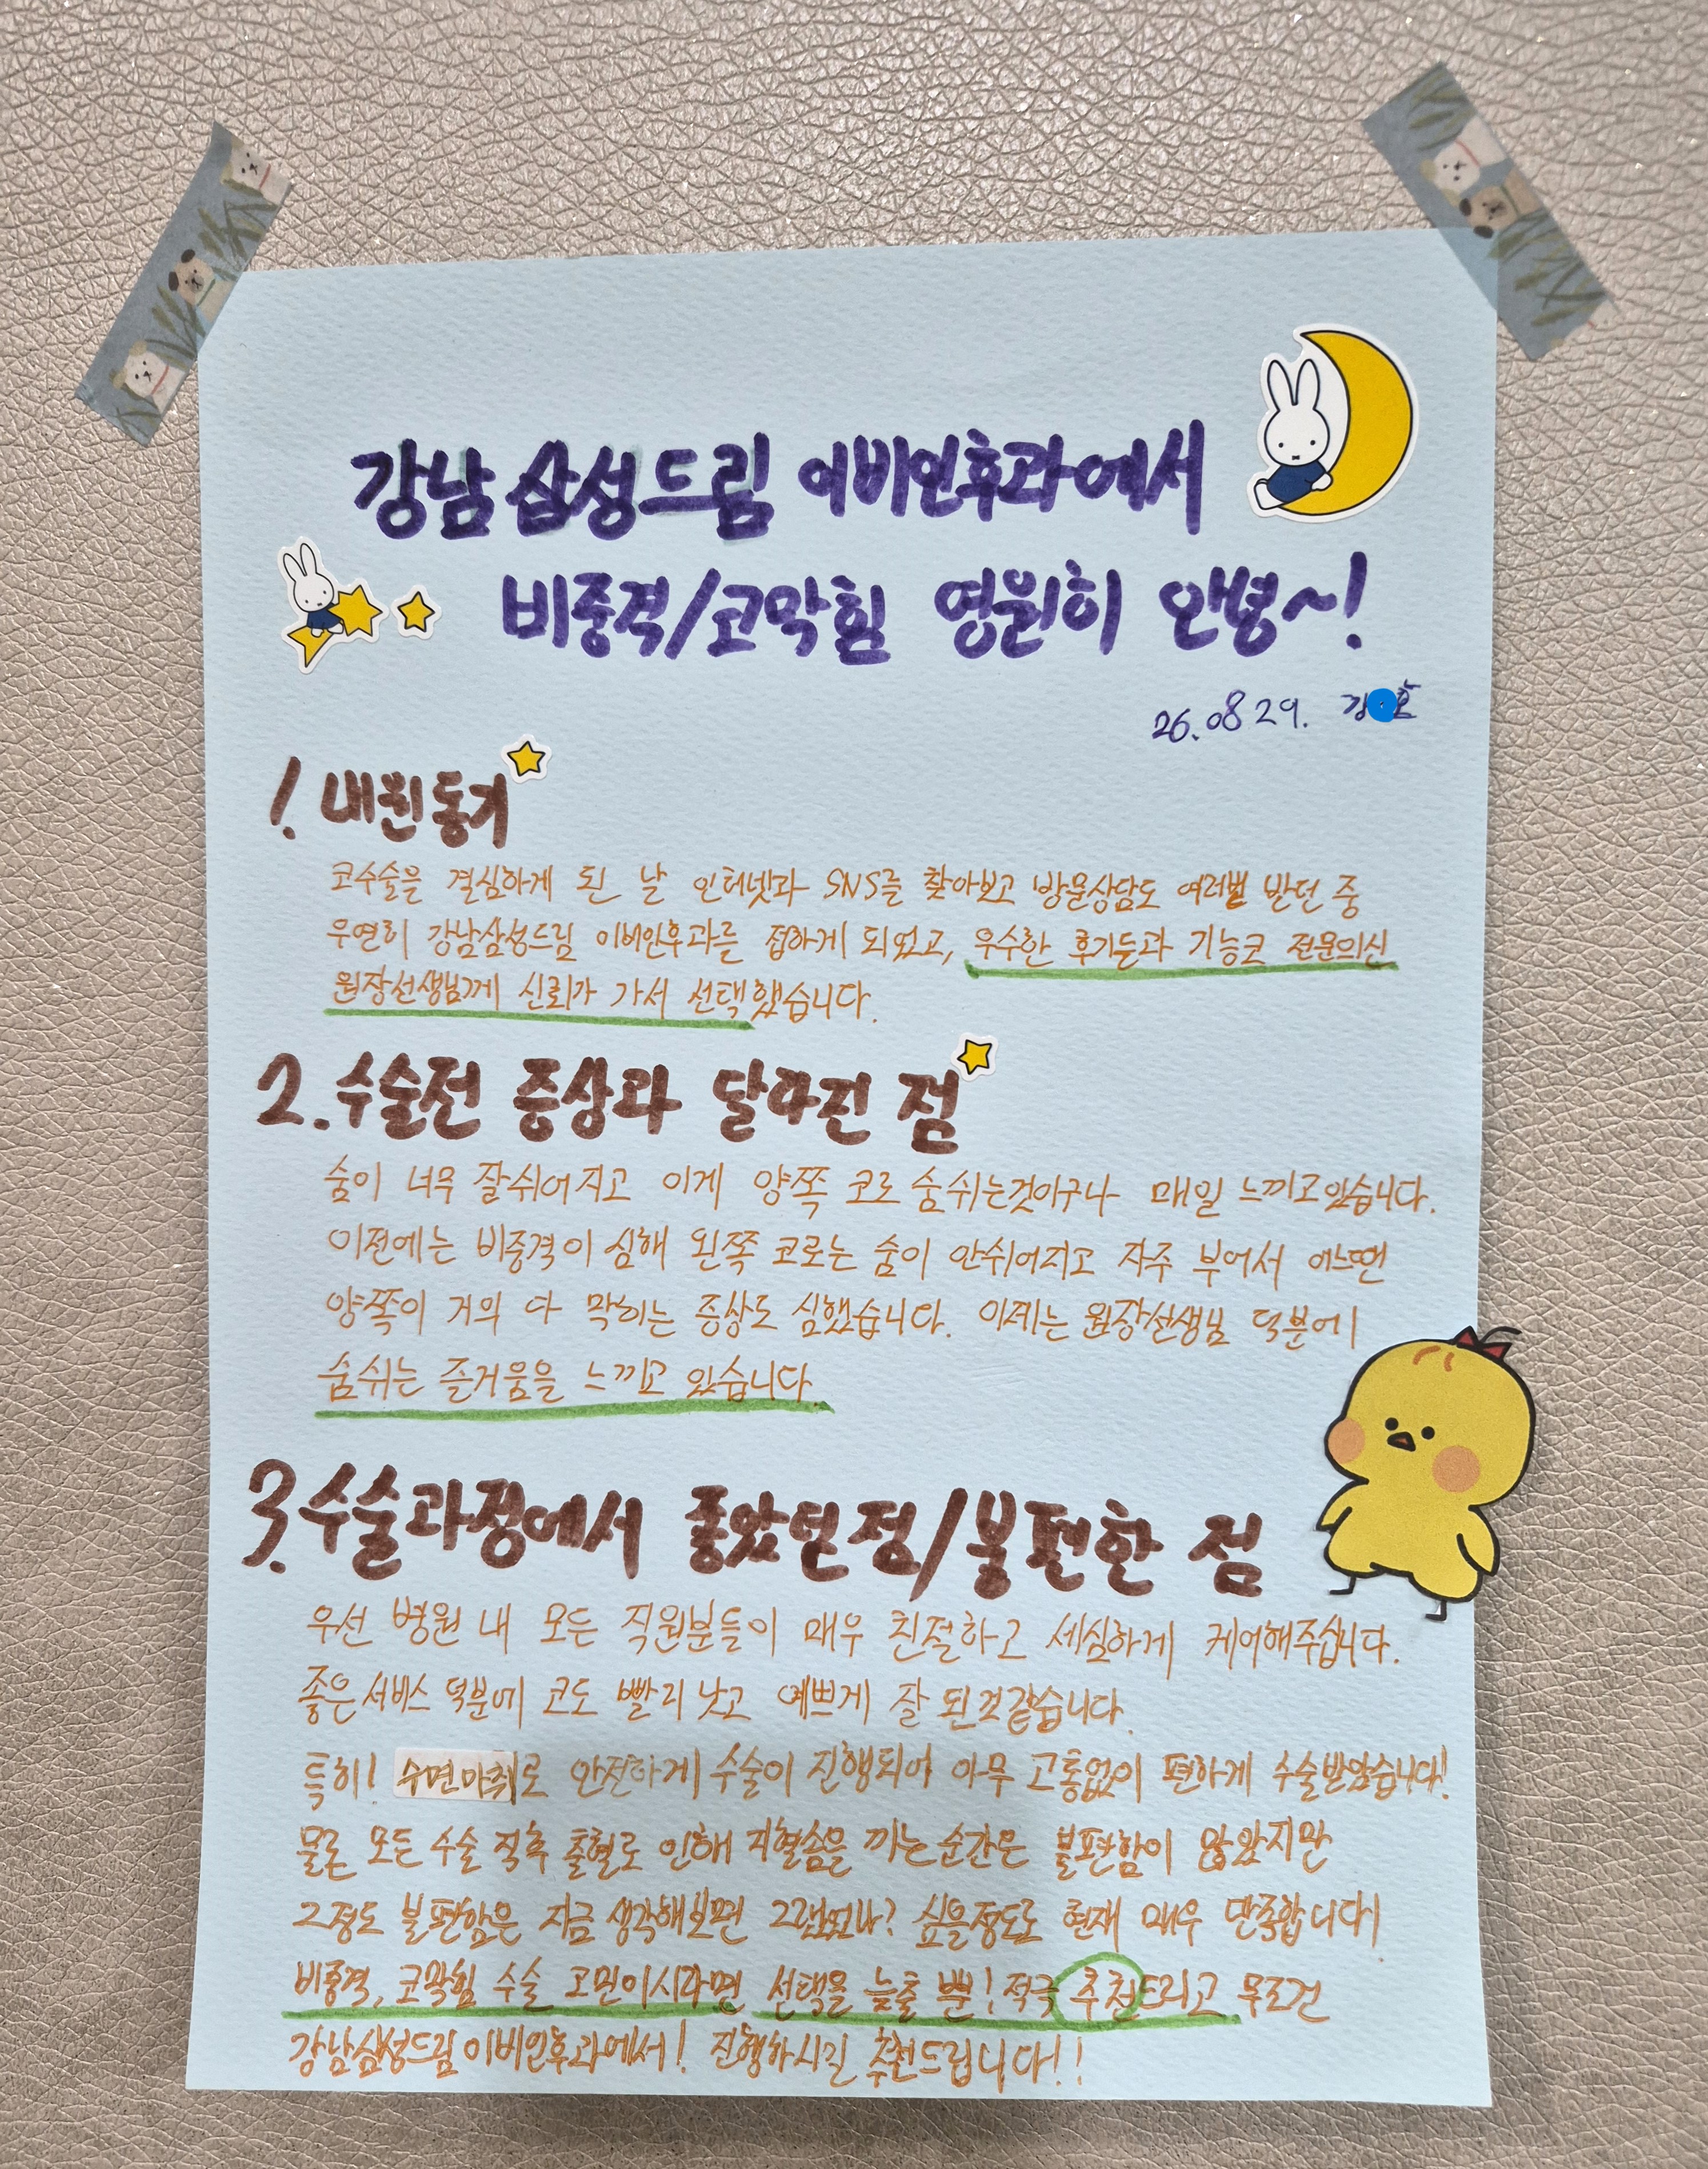 강남삼성드림 이비인후과에서
비중격/코막힘 영원히 안녕~!
26.08 29. 김 호
1. 내원동기
코수술을 결심하게 된 날 인터넷과 SNS를 찾아보고 방문상담도 여러번 받던 중
우연히 강남삼성드림 이비인후과를 접하게 되었고, 우수한 후기들과 기능코 전문의신
원장선생님께 신뢰가 가서 선택했습니다.
2. 수술전 증상과 달라진 점
숨이 너무 잘쉬어지고 이게 양쪽 코로 숨쉬는것이구나 매일 느끼고있습니다.
이전에는 비중격이 심해 왼쪽 코로는 숨이 안쉬어지고 자주 부어서 어느땐
양쪽이 거의 다 막히는 증상도 심했습니다. 이제는 원장선생님 덕분에
숨쉬는 즐거움을 느끼고 있습니다.
3. 수술과정에서 좋았던점/불편한 점
우선 병원 내 모든 직원분들이 매우 친절하고 세심하게 케어해주십니다.
좋은서비스 덕분에 코도 빨리 낫고 예쁘게 잘 된것같습니다.
특히! 수면마취로 안전하게 수술이 진행되어 아무 고통없이 편하게 수술받았습니다!
물론 모든 수술 직후 출혈로 인해 지혈솜을 끼는 순간은 불편함이 많았지만
그정도 불편함은 지금 생각해보면 그랬었나? 싶을정도로 현재 매우 만족합니다!
비중격, 코막힘 수술 고민이시라면 선택을 늦출 뿐! 적극 추천드리고 무조건
강남삼성드림이비인후과에서! 진행하시길 추천드립니다!!